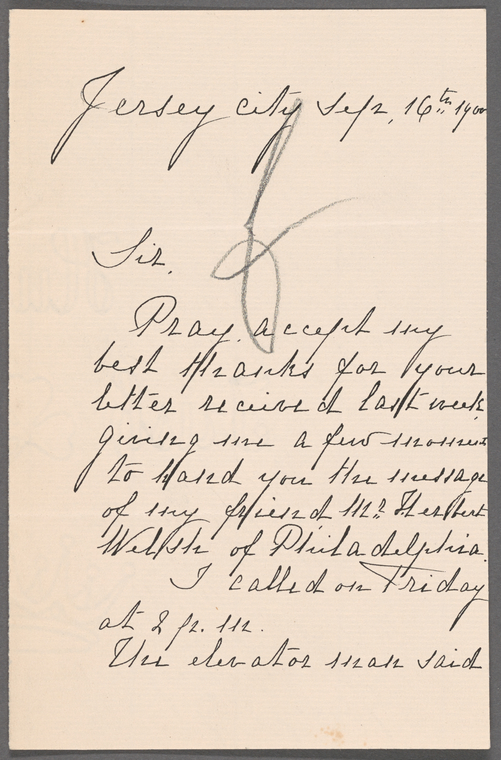 Jersey city Sep, 16th 1900
Sir,
Pray, accept my
best thanks for your
letter received last week
giving me a few moment
to hand you the message
of my friend Mr. Herbert
Welsh of Philadelphia.
I called on Friday
at 2 p.m.
The elevator man said